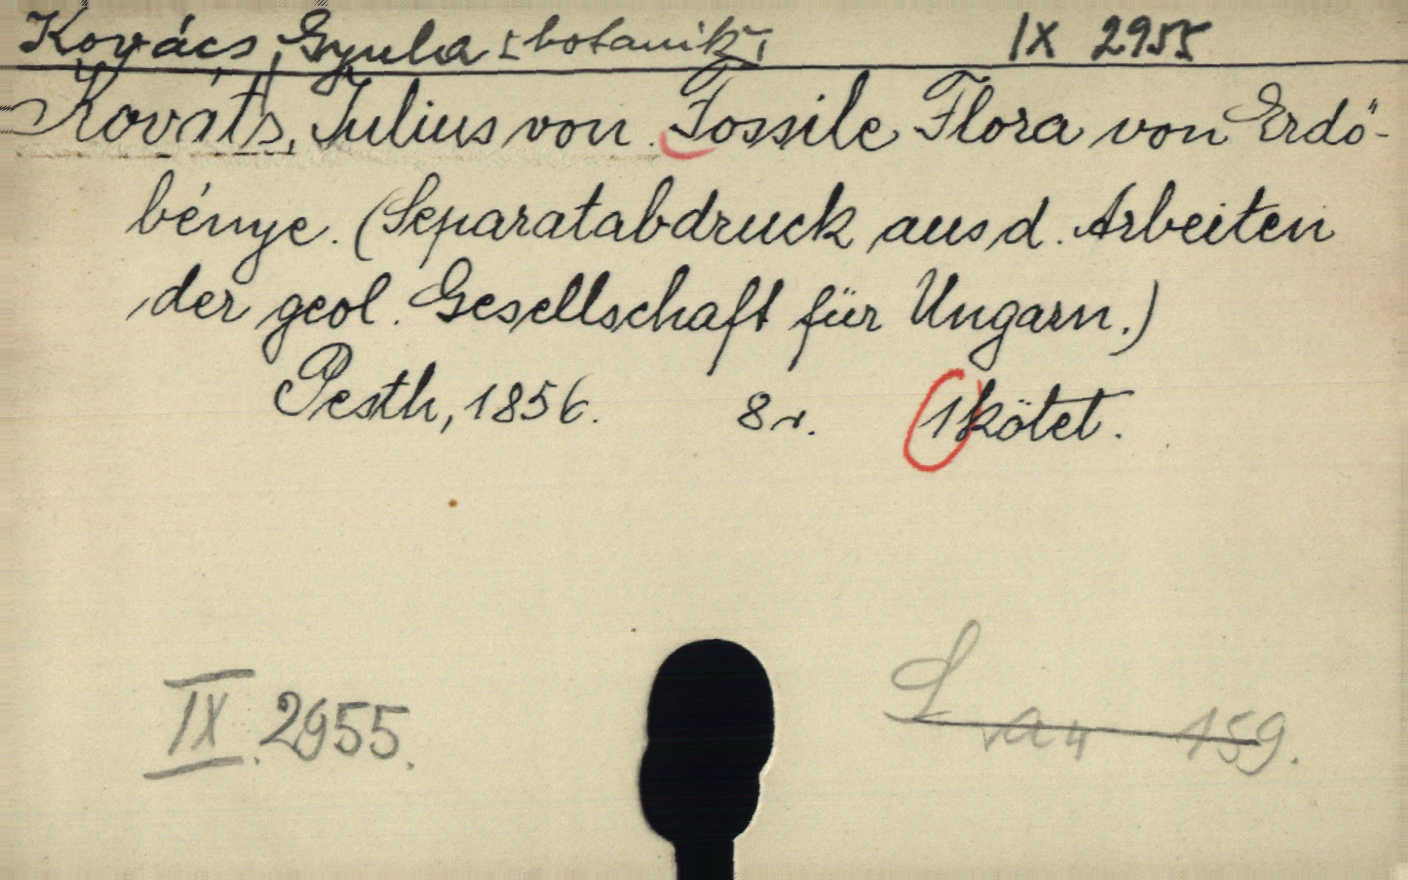 Kovács, Gyula [botanik.] IX 2955
Kováts, Julius von. Fossile Flora von Erdő-
bénye. (Separatabdruck aus d. Arbeiten
der geol. Gesellschaft für Ungarn.)
Pesth, 1856. 8r. 1 kötet.
IX. 2955. 159.